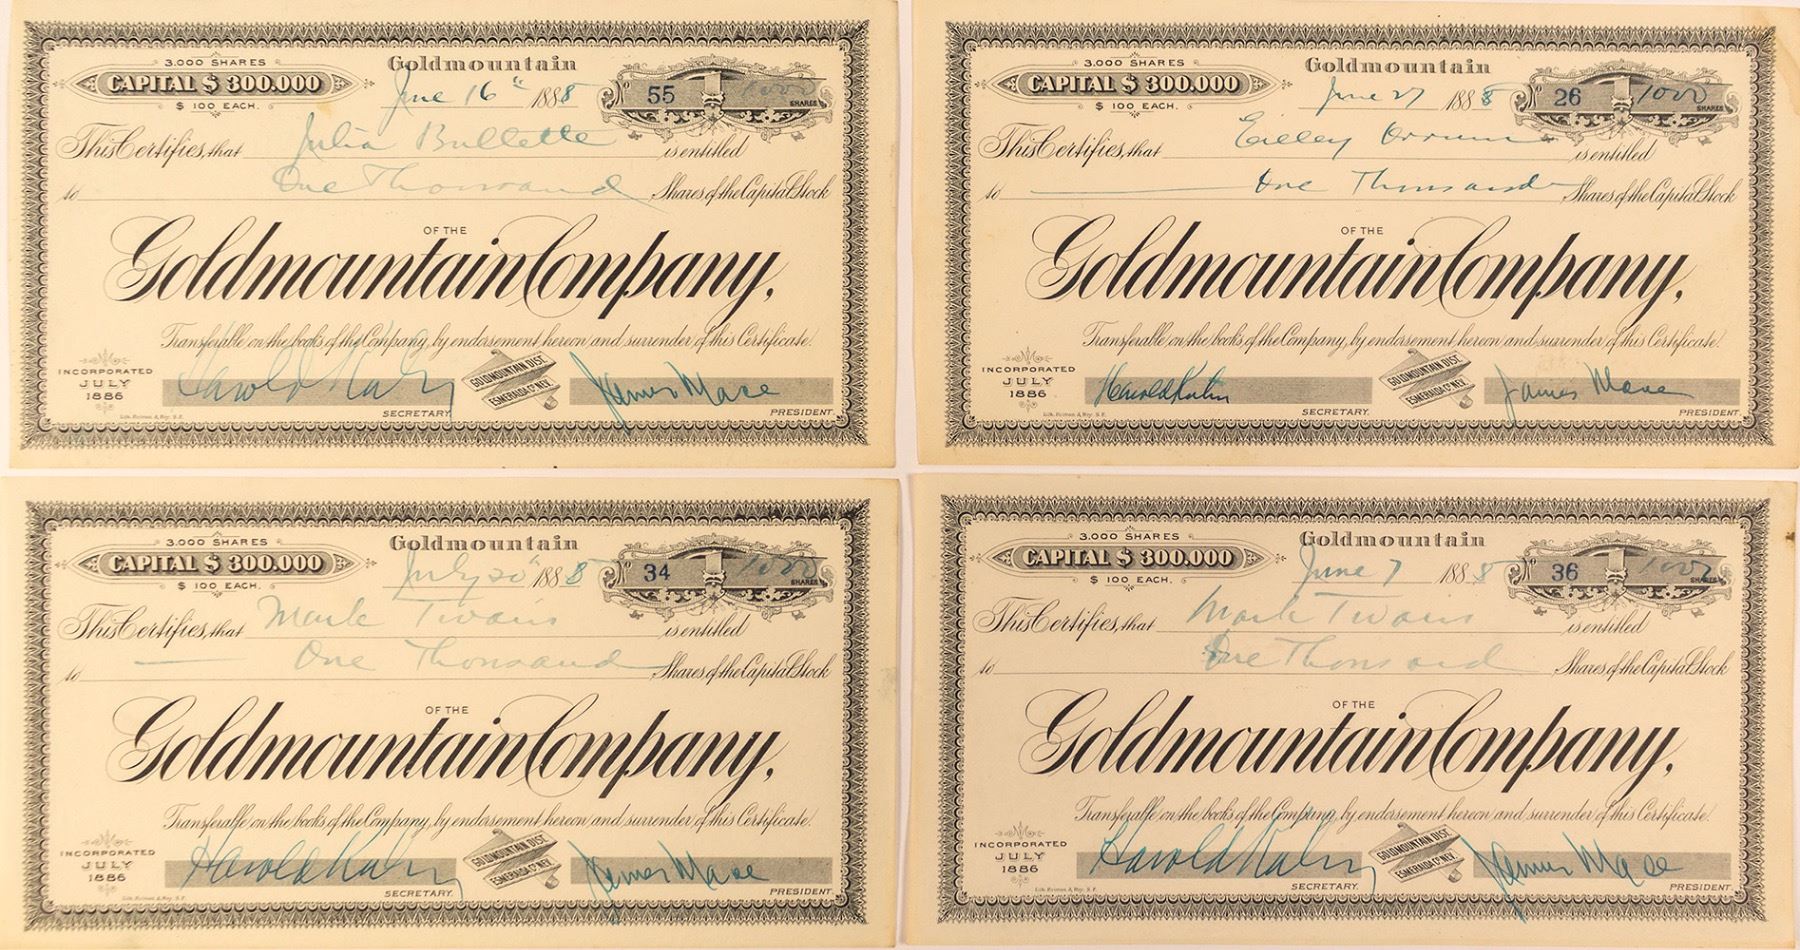 3.000 SHARES
CAPITAL $ 300.000
$ 100 EACH.
Goldmountain
June 16th 1888
No 55
1000
SHARES
This Certifies, that Julia Bullette is entitled
to One Thousand Shares of the Capital Stock
OF THE
Goldmountain Company,
Transferable on the books of the Company, by endorsement hereon and surrender of this Certificate.
INCORPORATED
JULY
1886
Harold Kahn
SECRETARY.
GOLDMOUNTAIN DIST.
ESMERALDA CO. NEV.
James Mace
PRESIDENT.
3.000 SHARES
CAPITAL $ 300.000
$ 100 EACH.
Goldmountain
June 27 1888
No 26
1000
SHARES
This Certifies, that Eilley is entitled
to One Thousand Shares of the Capital Stock
OF THE
Goldmountain Company,
Transferable on the books of the Company, by endorsement hereon and surrender of this Certificate.
INCORPORATED
JULY
1886
Harold Kahn
SECRETARY.
GOLDMOUNTAIN DIST.
ESMERALDA CO. NEV.
James Mace
PRESIDENT.
3.000 SHARES
CAPITAL $ 300.000
$ 100 EACH.
Goldmountain
July 20th 1888
No 34
1000
SHARES
This Certifies, that Mark Twain is entitled
to One Thousand Shares of the Capital Stock
OF THE
Goldmountain Company,
Transferable on the books of the Company, by endorsement hereon and surrender of this Certificate.
INCORPORATED
JULY
1886
Harold Kahn
SECRETARY.
GOLDMOUNTAIN DIST.
ESMERALDA CO. NEV.
James Mace
PRESIDENT.
3.000 SHARES
CAPITAL $ 300.000
$ 100 EACH.
Goldmountain
June 7 1888
No 36
1000
SHARES
This Certifies, that Mark Twain is entitled
to One Thousand Shares of the Capital Stock
OF THE
Goldmountain Company,
Transferable on the books of the Company, by endorsement hereon and surrender of this Certificate.
INCORPORATED
JULY
1886
Harold Kahn
SECRETARY.
GOLDMOUNTAIN DIST.
ESMERALDA CO. NEV.
James Mace
PRESIDENT.